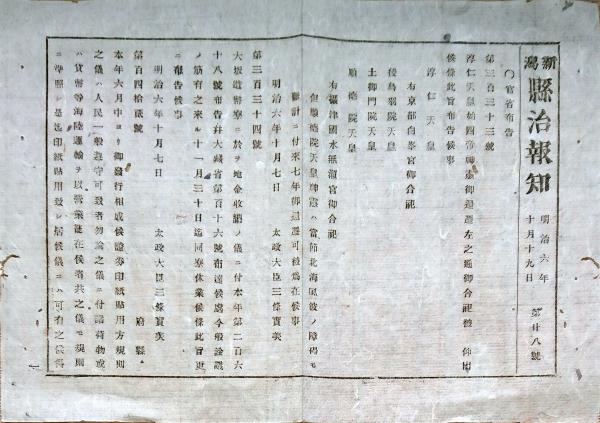 新潟縣治報知
明治六年
十月十九日
第廿八號
〇官省布告
第三百三十三號
淳仁天皇始四帝神靈御還遷左之通御合祀被 仰出
候條此旨布告候事
淳仁天皇
右京都白峯宮御合祀
後鳥羽院天皇
土御門院天皇
順德院天皇
右攝津國水無瀨宮御合祀
但順德院天皇神靈ハ當節北海風波ノ障碍モ
難計ニ付來七年御還遷可被爲在候事
明治六年十月七日
太政大臣三條實美
第三百三十四號
大坂造幣寮ニ於テ地金收購ノ儀ニ付本年第二百六
十八號布告幷大藏省第百十六號布達候處今般詮議
ノ筋有之來ル十一月三十日迄同寮休業候條此旨更
ニ布告候事
明治六年十月七日
太政大臣三條實美
第百四拾貳號
府縣
本年六月中ヨリ御發行相成候證券印紙貼用方規則
之儀ハ人民一般遵守可致者勿論之儀ニ付諸荷物或
ハ貨幣等海陸運輸ヲ以營業罷在候者共之儀モ規則
ニ準據シ是迄印紙貼用致シ居候儀ニハ可有之候得